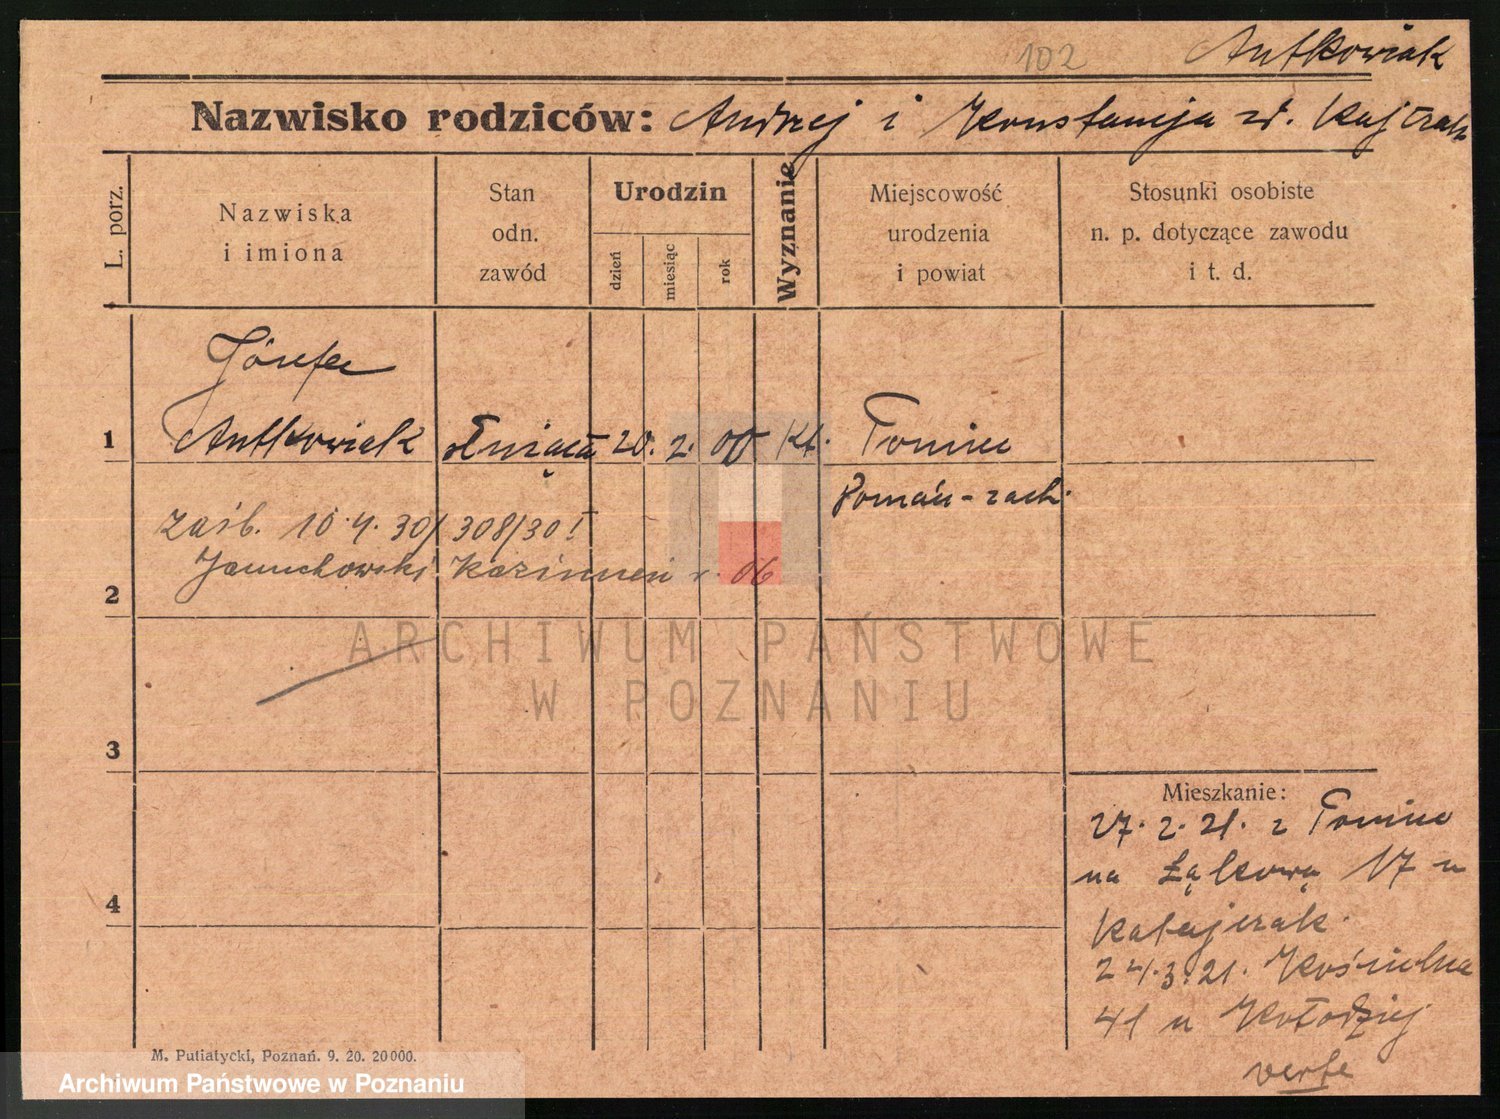 102 Antkowiak
Nazwisko rodziców: Andrzej i Konstancja zd.
L. porz.
Nazwiska
i imiona
Stan
odn.
zawód
Urodzin
dzień
miesiąc
rok
Wyznanie
Miejscowość
urodzenia
i powiat
Stosunki osobiste
n. p. dotyczące zawodu
i t. d.
Józefa
1 Antkowiak służąca 20. 2. 00 Kt.
Poznań-zach.
zaśb. 10.4.30/308/30!
2 Januchowski Kazimierz r. 06
ARCHIWUM PAŃSTWOWE
W POZNANIU
3
4
Mieszkanie:
27. 2. 21. z
na Łąkową 17 u
Katajczak.
24.3.21. Kościelna
41 u Kołodziej
verte
M. Putiatycki, Poznań. 9. 20. 20000.
Archiwum Państwowe w Poznaniu